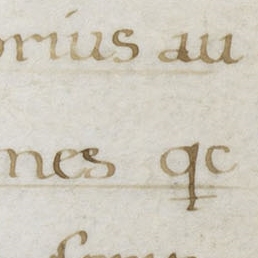 orius au
nes qc